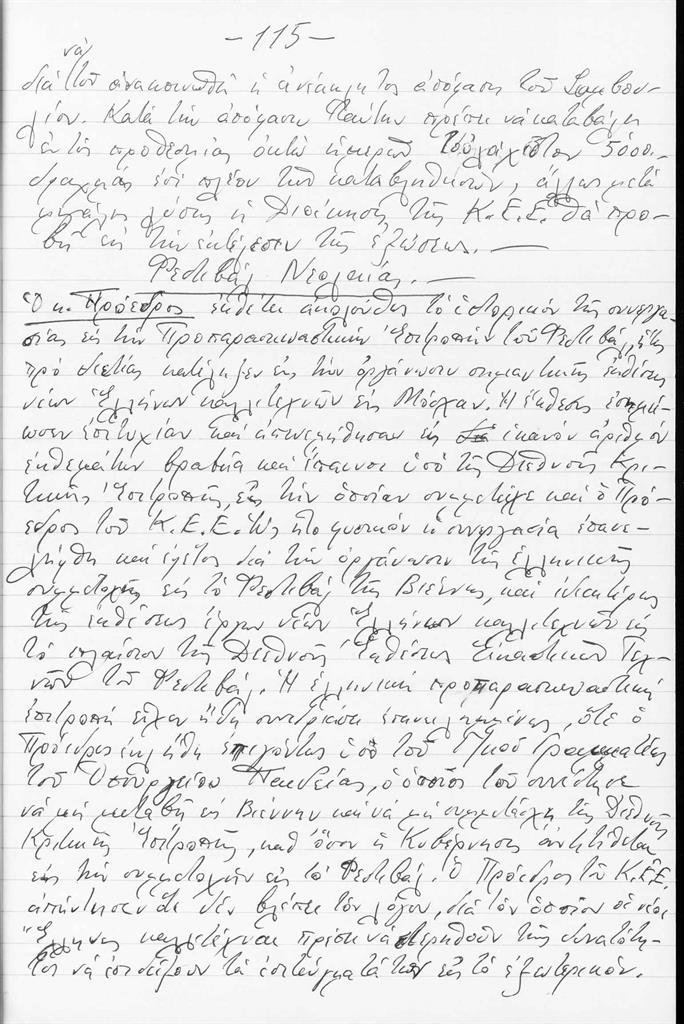 -115-
νὰ
διὰ τοῦ ἀνακοινωθῆ ἡ ἀνέκκλητος ἀπόφασις τοῦ Συμβου-
λίου. Κατὰ τὴν ἀπόφασιν ταύτην πρέπει νὰ καταβάλη
ἐντὸς προθεσμίας ὀκτὼ ἡμερῶν τοὐλάχιστον 5000.
δραχμὰς ἐπὶ πλέον τῶν καταβληθεισῶν, ἄλλως μετὰ
λύπης ἡ Διοίκησις τῆς Κ.Ε.Ε. θὰ προ-
βῆ εἰς τὴν ἐκτέλεσιν τῆς ἐξώσεως. —
Φεστιβὰλ Νεολαίας. —
Ὁ κ. Πρόεδρος ἐκθέτει ἀκολούθως τὸ ἱστορικὸν τῆς συνεργα-
σίας εἰς τὴν Προπαρασκευαστικὴν Ἐπιτροπὴν τοῦ Φεστιβάλ, ἥτις
πρὸ διετίας κατέληξεν εἰς τὴν ὀργάνωσιν σημαντικῆς ἐκθέσεως
νέων Ἑλλήνων καλλιτεχνῶν εἰς Μόσχαν. Ἡ ἔκθεσις ἐσημεί-
ωσεν ἐπιτυχίαν καὶ ἀπενεμήθησαν εἰς ἱκανὸν ἀριθμὸν
ἐκθεμάτων βραβεῖα καὶ ἔπαινοι ὑπὸ τῆς Διεθνοῦς Κρι-
τικῆς Ἐπιτροπῆς, εἰς τὴν ὁποίαν συμμετεῖχε καὶ ὁ Πρό-
εδρος τοῦ Κ.Ε.Ε. Ὡς ἦτο φυσικὸν ἡ συνεργασία ἐπανε-
λήφθη καὶ ἐφέτος διὰ τὴν ὀργάνωσιν τῆς ἑλληνικῆς
συμμετοχῆς εἰς τὸ Φεστιβὰλ τῆς Βιέννης, καὶ ἰδιαιτέρως
τῆς ἐκθέσεως ἔργων νέων Ἑλλήνων καλλιτεχνῶν εἰς
τὸ πλαίσιον τῆς Διεθνοῦς Ἐκθέσεως Εἰκαστικῶν Τεχ-
νῶν τοῦ Φεστιβάλ. Ἡ ἑλληνικὴ προπαρασκευαστικὴ
ἐπιτροπὴ εἶχεν ἤδη συνεδριάσει ἐπανειλημμένως, ὅτε ὁ
Πρόεδρος ἐκλήθη ἐπειγόντως ὑπὸ τοῦ Γενικοῦ Γραμματέως
τοῦ Ὑπουργείου Παιδείας, ὁ ὁποῖος τοῦ συνέστησε
νὰ μὴ μεταβῆ εἰς Βιέννην καὶ νὰ μὴ συμμετάσχη τῆς Διεθνοῦς
Κριτικῆς Ἐπιτροπῆς, καθ' ὅσον ἡ Κυβέρνησις ἀντιτίθεται
εἰς τὴν συμμετοχὴν εἰς τὸ Φεστιβάλ. Ὁ Πρόεδρος τοῦ Κ.Ε.Ε.
ἀπήντησεν ὅτι δὲν βλέπει τὸν λόγον, διὰ τὸν ὁποῖον οἱ νέοι
Ἕλληνες καλλιτέχναι πρέπει νὰ στερηθοῦν τῆς δυνατότη-
τος νὰ ἐπιδείξουν τὰ ἐπιτεύγματά των εἰς τὸ ἐξωτερικόν.